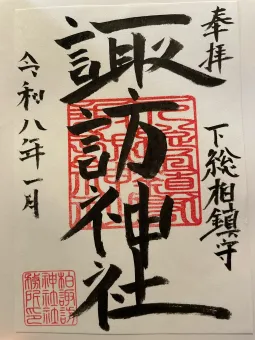 奉拝
下総相鎮守
諏訪神社
令和八年一月
柏諏訪
神社社
務所印